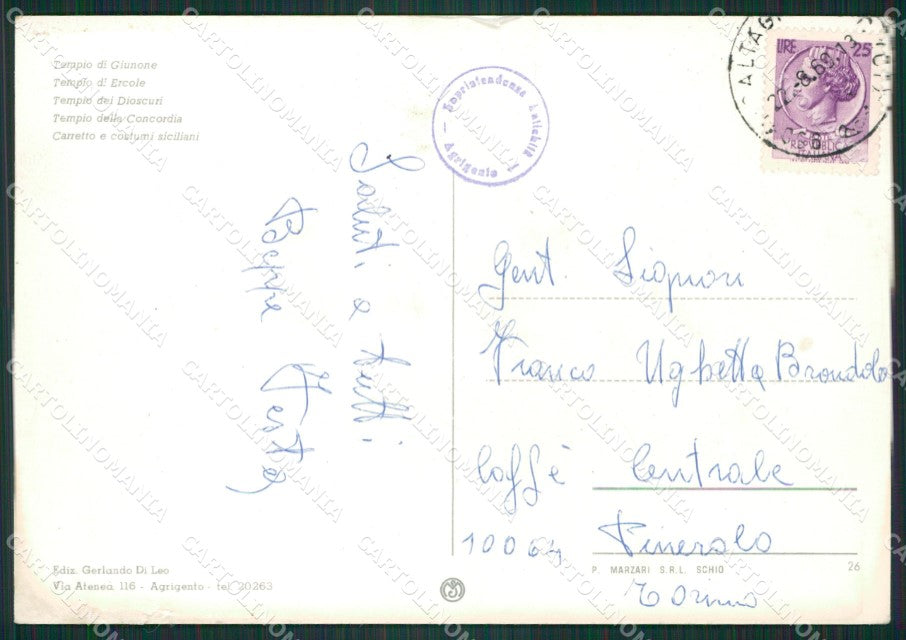 Tempio di Giunone
Tempio di Ercole
Tempio dei Dioscuri
Tempio della Concordia
Carretto e costumi siciliani
Soprintendenza Antichità
Agrigento
LIRE 25
22.-8.69.13
REPUBBLICA
ITALIANA
Saluti a tutti
Beppe Testa
Gent. Signori
Franco Ughetta Brondolo
Caffè Centrale
10064 Pinerolo
Torino
Ediz. Gerlando Di Leo
Via Atenea 116 - Agrigento - tel. 20263
P. MARZARI S.R.L. SCHIO
26
CARTOLINOMANIA